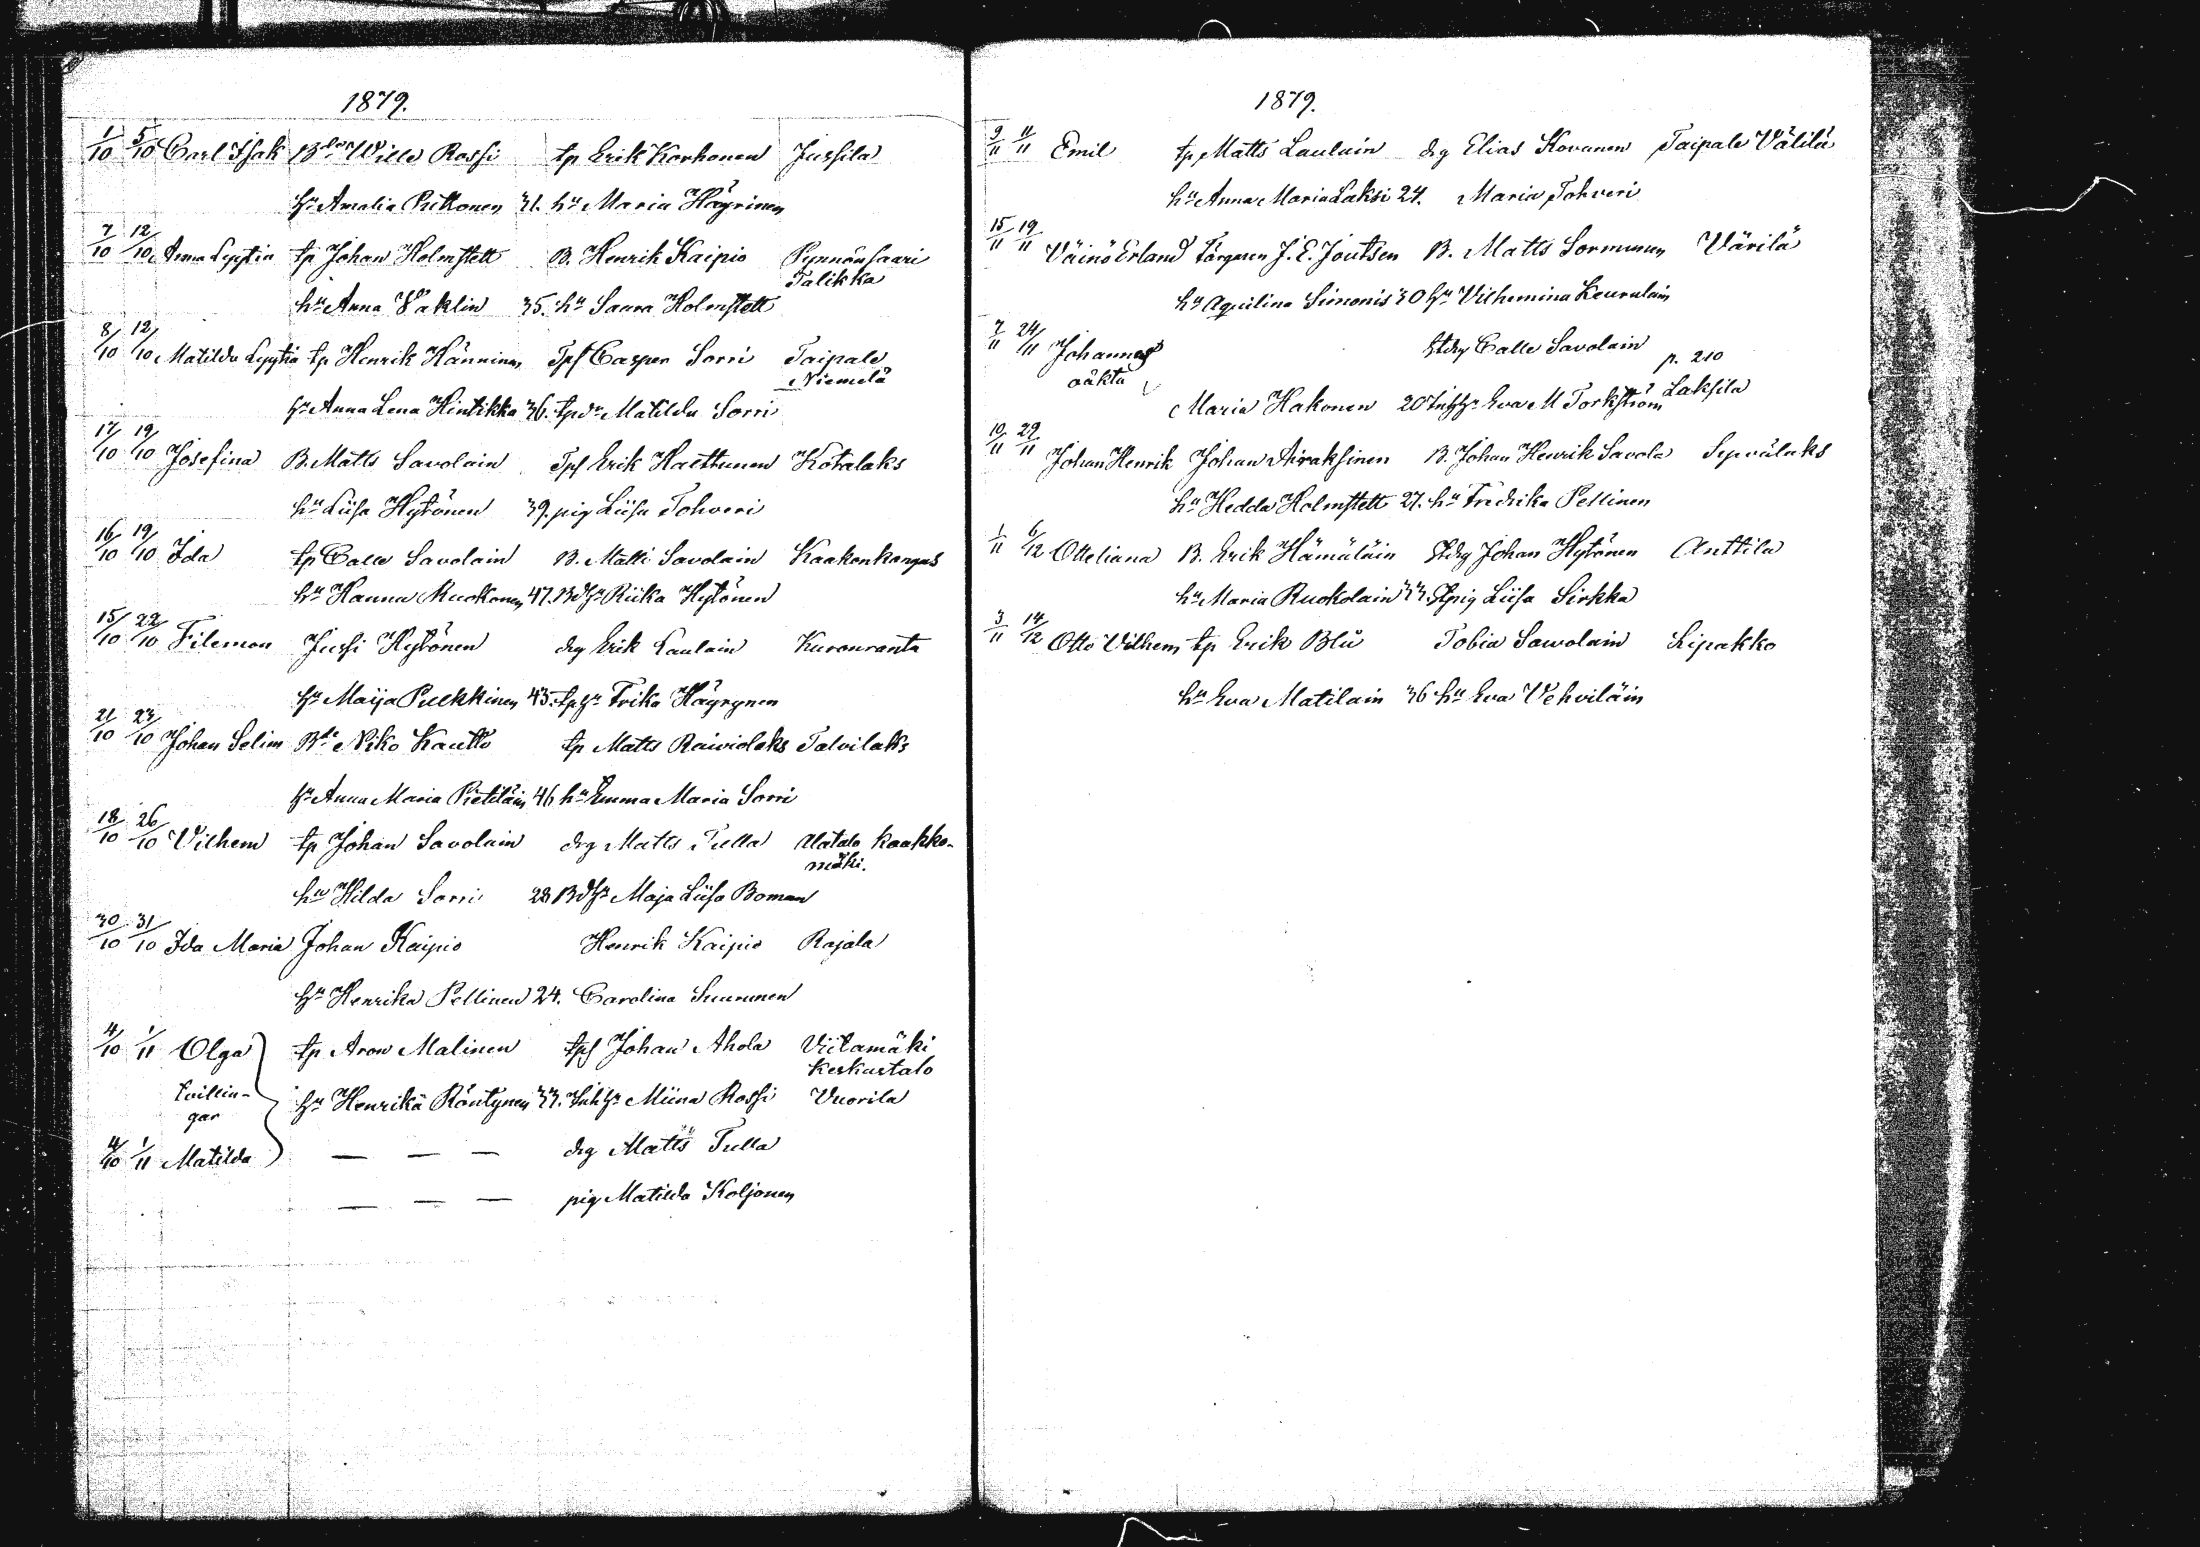 1879.
1/10 5/10 Carl Isak Bdson Wille Rossi tp Erik Korhonen Jussila
hu Amalia Pulkonen 31. hu Maria Häyrinen
7/10 12/10 Anna Lyytia tp Johan Holmstett B. Henrik Kaipio Pynnönsaari
Talikka
hu Anna Vaklin 35. hu Saara Holmstett
8/10 12/10 Matilda Lyytia tp Henrik Hänninen Tps Casper Sorri Taipale
Niemelä
hu Anna Lena Hintikka 36. tpdr Matilda Sorri
17/10 19/10 Josefina B. Matts Savolain Tps Erik Haettunen Kotalaks
hu Liisa Hytönen 39. pig Liisa Tohveri
16/10 19/10 Ida tp Calle Savolain B. Matti Savolain Kaakonkangas
hu Hanna Ruokonen 47. Bdhu Riika Hytönen
15/10 22/10 Filemon Jussi Hytönen drg Erik Laulain Kuronranta
hu Maija Pulkkinen 45. tphu Frika Häyrynen
21/10 23/10 Johan Selim Bde Niko Kautto tp Matts Raiviolaks Talvilaks
hu Anna Maria Pietiläin 46 hu Emma Maria Sorri
18/10 26/10 Vilhem tp Johan Savolain drg Matts Tulla Alatalo Kaakko-
mäki.
hu Hilda Sorri 28 Bdhu Maja Liisa Boman
30/10 31/10 Ida Maria Johan Kaipio Henrik Kaipio Rajala
hu Henrika Pellinen 24. Carolina Suurunen
4/10 1/11 Olga tp Aron Malinen tps Johan Ahola Viitamäki
Keskustalo
Tvillin-
gar
hu Henrika Röntynen 33. Inhhu Miina Rossi Vuorila
4/10 1/11 Matilda — — — drg Matts Tulla
— — — pig Matilda Koljonen
1879.
9/11 11/11 Emil tp Matts Laulain drg Elias Kovanen Taipale Välilä
hu Anna Maria Laksi 24. Maria Tohveri
15/11 19/11 Väinö Erland Färgaren J. E. Joutsen B. Matts Sormunen Värilä
hu Aquilina Simonis 30 hu Vilhemina Keurulain
7/11 24/11 Johannes Stdrg Calle Savolain
oäkta
p. 210
Maria Hakonen 20 Inhhu Eva M Torkström Laksila
10/11 29/11 Johan Henrik Johan Airaksinen B. Johan Henrik Savola Sepvälaks
hu Hedda Holmstett 27. hu Fredrika Pellinen
1/11 6/12 Otteliana B. Erik Hämäläin Stdrg Johan Hytönen Anttila
hu Maria Ruokolain 33. Stpig Liisa Sirkka
3/11 14/12 Otto Vilhem tp Erik Blå Tobia Sawolain Lipakko
hu Eva Matilain 36 hu Eva Vehviläin